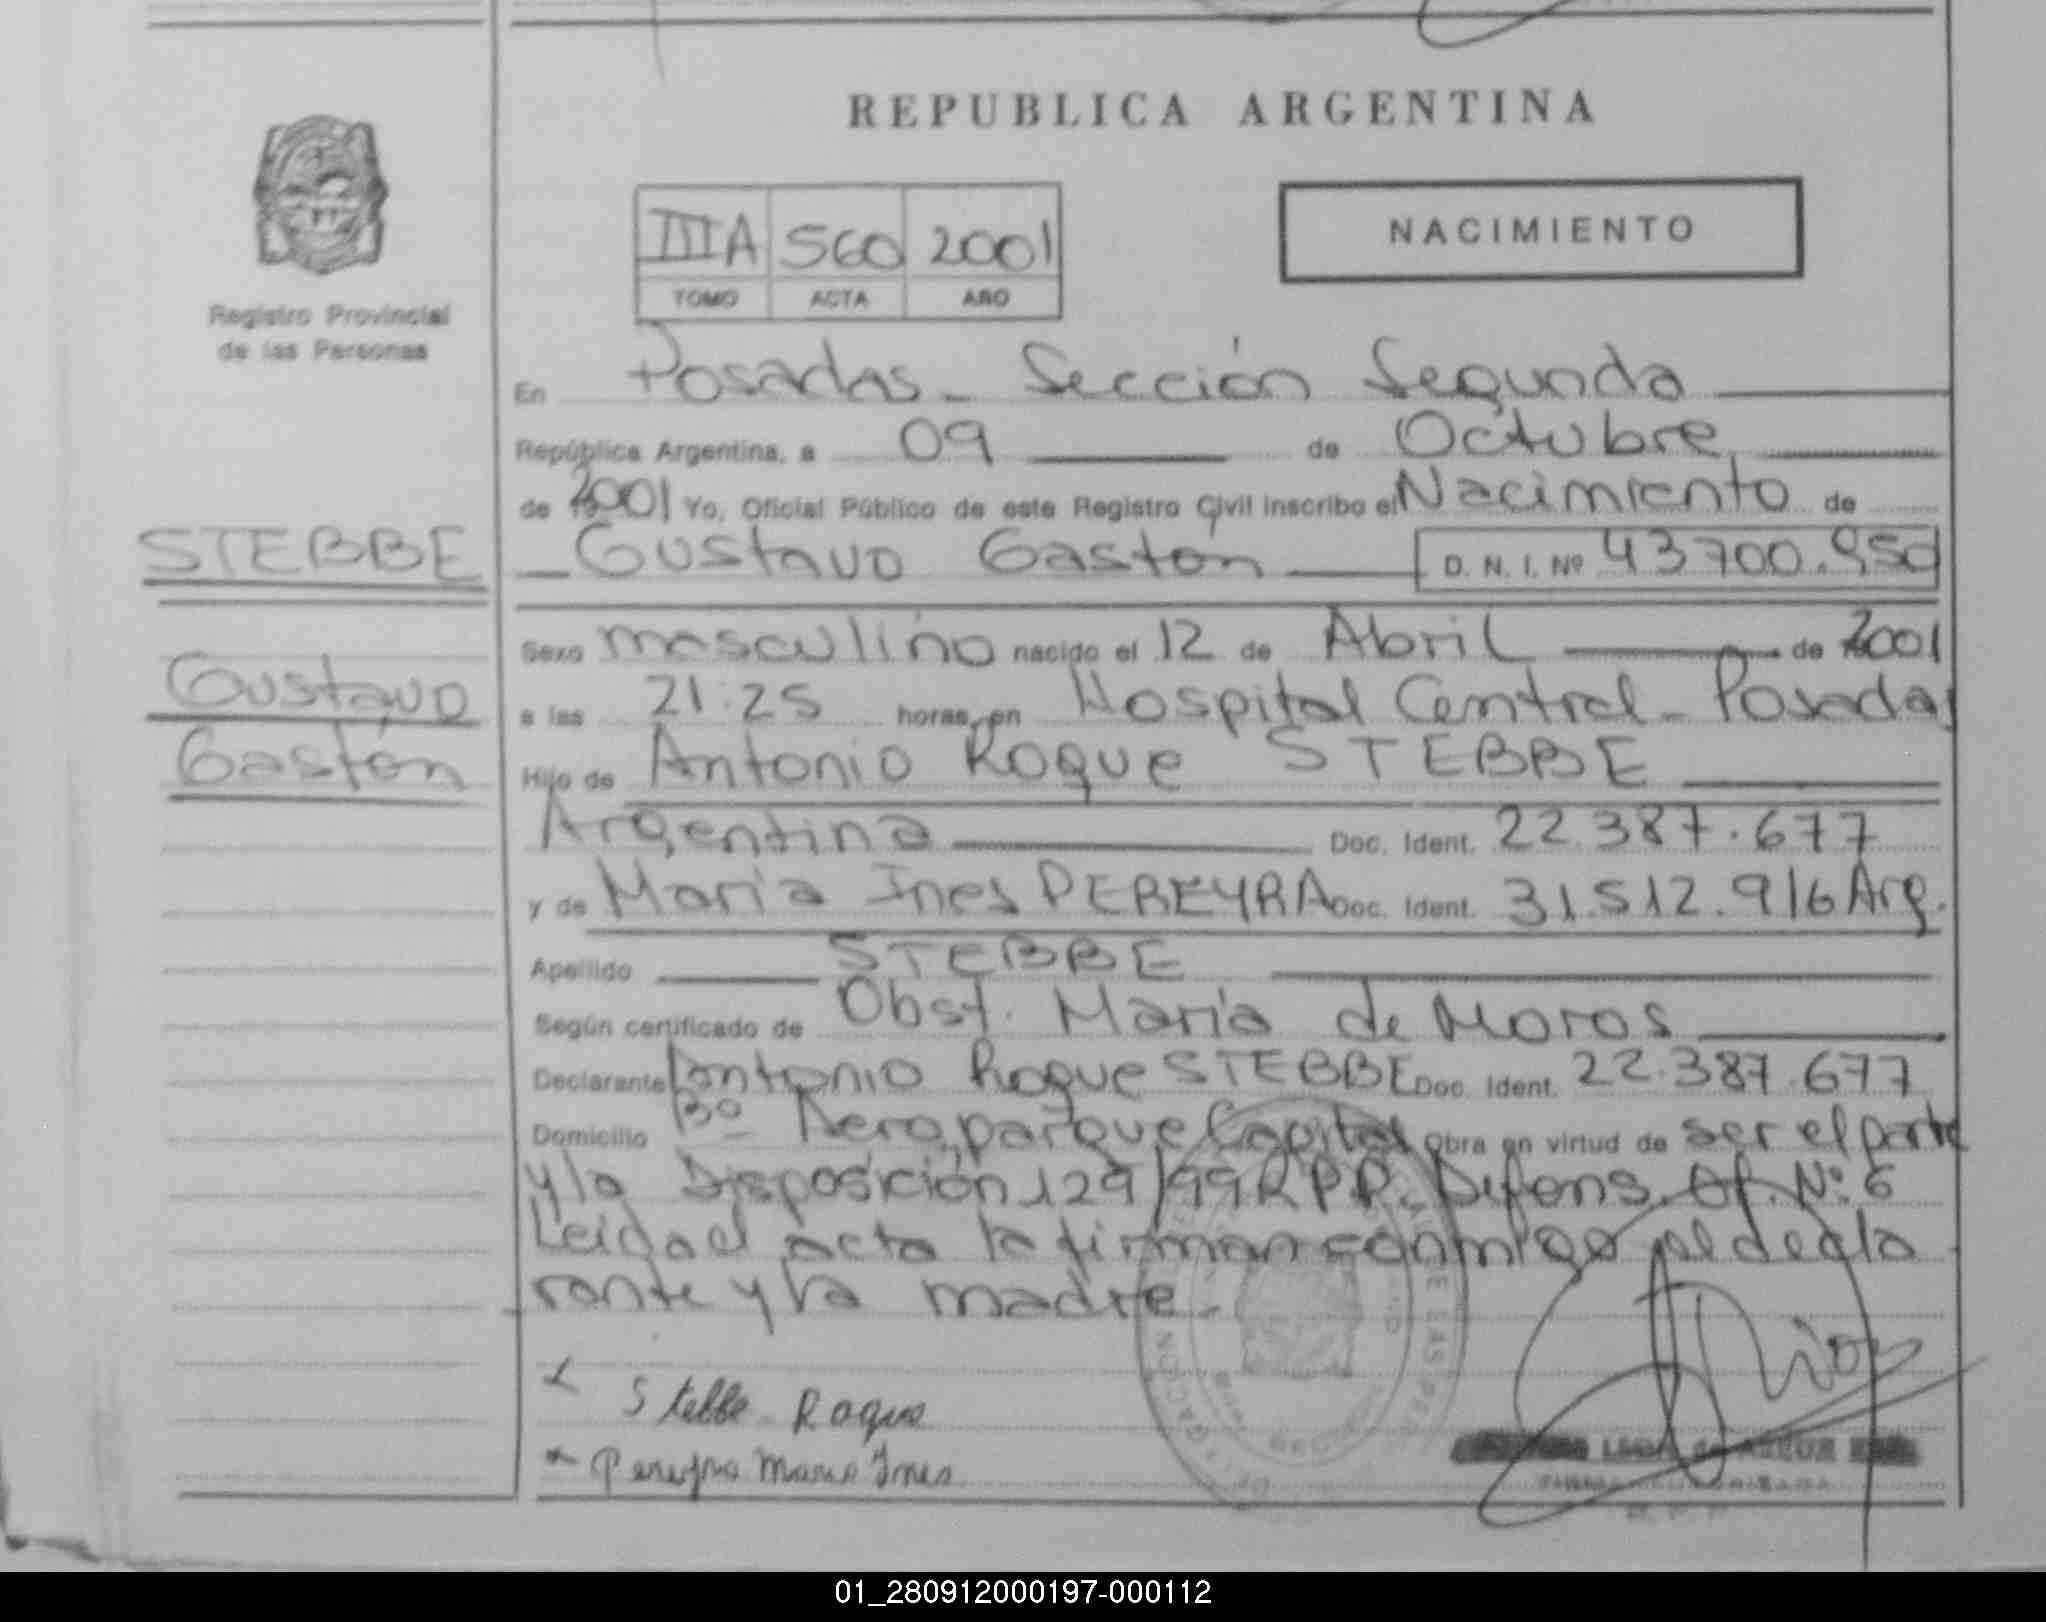 REPUBLICA ARGENTINA
NACIMIENTO
IIIA 560 2001
TOMO ACTA AÑO
Registro Provincial
de las Personas
En Posadas - Sección Segunda
República Argentina, a 09 de Octubre
de 2001 Yo, Oficial Público de este Registro Civil inscribo el Nacimiento de
STEBBE
Gustavo Gastón D. N. I. Nº 43700.950
Gustavo
Gastón
Sexo masculino nacido el 12 de Abril de 2001
a las 21:25 horas, en Hospital Central - Posadas
Hijo de Antonio Roque STEBBE
Argentina Doc. Ident. 22.387.677
y de Maria Ines PEREYRA Doc. Ident. 31.512.916 Arg.
Apellido STEBBE
Según certificado de Obst. Maria de Moros
Declarante Antonio Roque STEBBE Doc. Ident. 22.387.677
Domicilio Bº Aeroparque Capital Obra en virtud de ser el parte
y la Disposición 129/99 R.P.P. Difens. Of. Nº 6
Leida el acta la firman conmigo el decla
rante y la madre.
Stebbe Roque
Pereyra Maria Ines
01_280912000197-000112